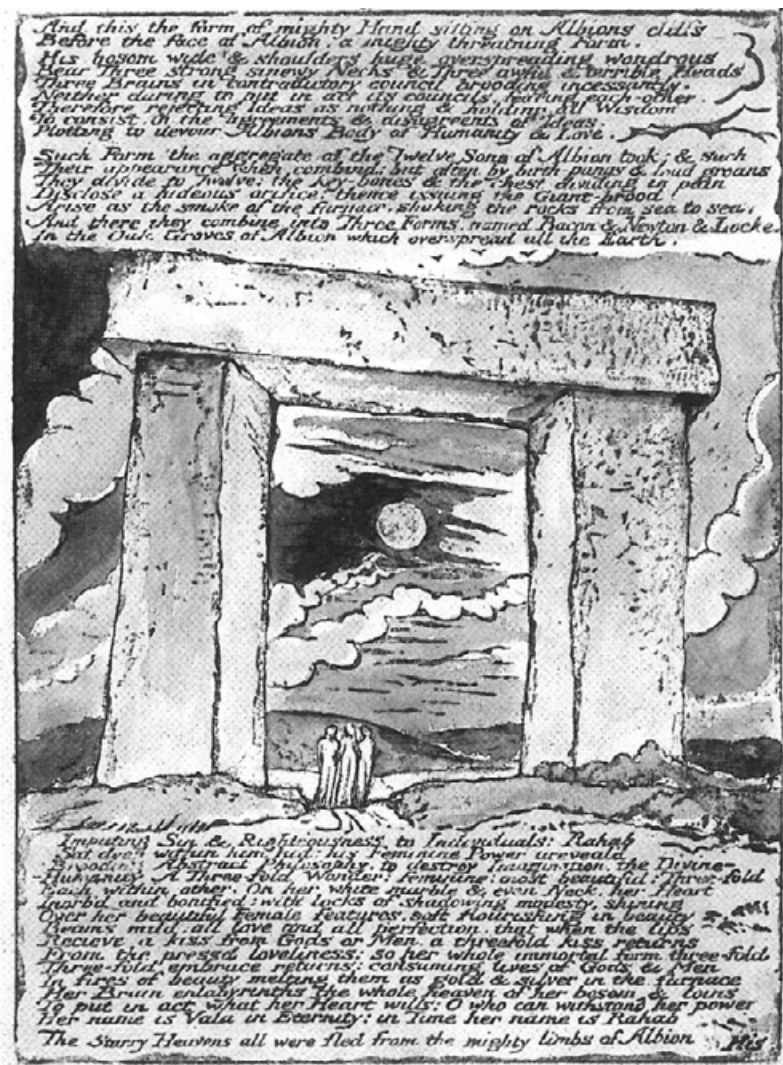 And this the form of mighty Hand sitting on Albions cliffs
Before the face of Albion, a mighty threatning Form.
His bosom wide & shoulders huge overspreading wondrous
Bear Three strong sinewy Necks & Three awful & terrible Heads
Three Brains in contradictory council brooding incessantly.
Neither daring to put in act its councils, fearing each-other,
Therefore rejecting Ideas as nothing & holding all Wisdom
To consist. in the agreements & disagreents of Ideas.
Plotting to devour Albions Body of Humanity & Love.
Such Form the aggregate of the Twelve Sons of Albion took; & such
Their appearance when combind: but often by birth-pangs & loud groans
They divide to Twelve: the key-bones & the chest dividing in pain
Disclose a hideous orifice; thence issuing the Giant-brood
Arise as the smoke of the furnace, shaking the rocks from sea to sea.
And there they combine into Three Forms, named Bacon & Newton & Locke,
In the Oak Groves of Albion which overspread all the Earth.
Imputing Sin & Righteousness to Individuals; Rahab
Sat deep within him hid: his Feminine Power unreveal'd
Brooding Abstract Philosophy. to destroy Imagination, the Divine-
-Humanity A Three-fold Wonder: feminine: most beautiful: Three-fold
Each within other. On her white marble & even Neck, her Heart
Inorb'd and bonified: with locks of shadowing modesty, shining
Over her beautiful Female features, soft flourishing in beauty
Beams mild, all love and all perfection, that when the lips
Recieve a kiss from Gods or Men, a threefold kiss returns
From the press'd loveliness: so her whole immortal form three-fold
Three-fold embrace returns: consuming lives of Gods & Men
In fires of beauty melting them as gold & silver in the furnace
Her Brain enlabyrinths the whole heaven of her bosom & loins
To put in act what her Heart wills; O who can withstand her power
Her name is Vala in Eternity: in Time her name is Rahab
The Starry Heavens all were fled from the mighty limbs of Albion
His